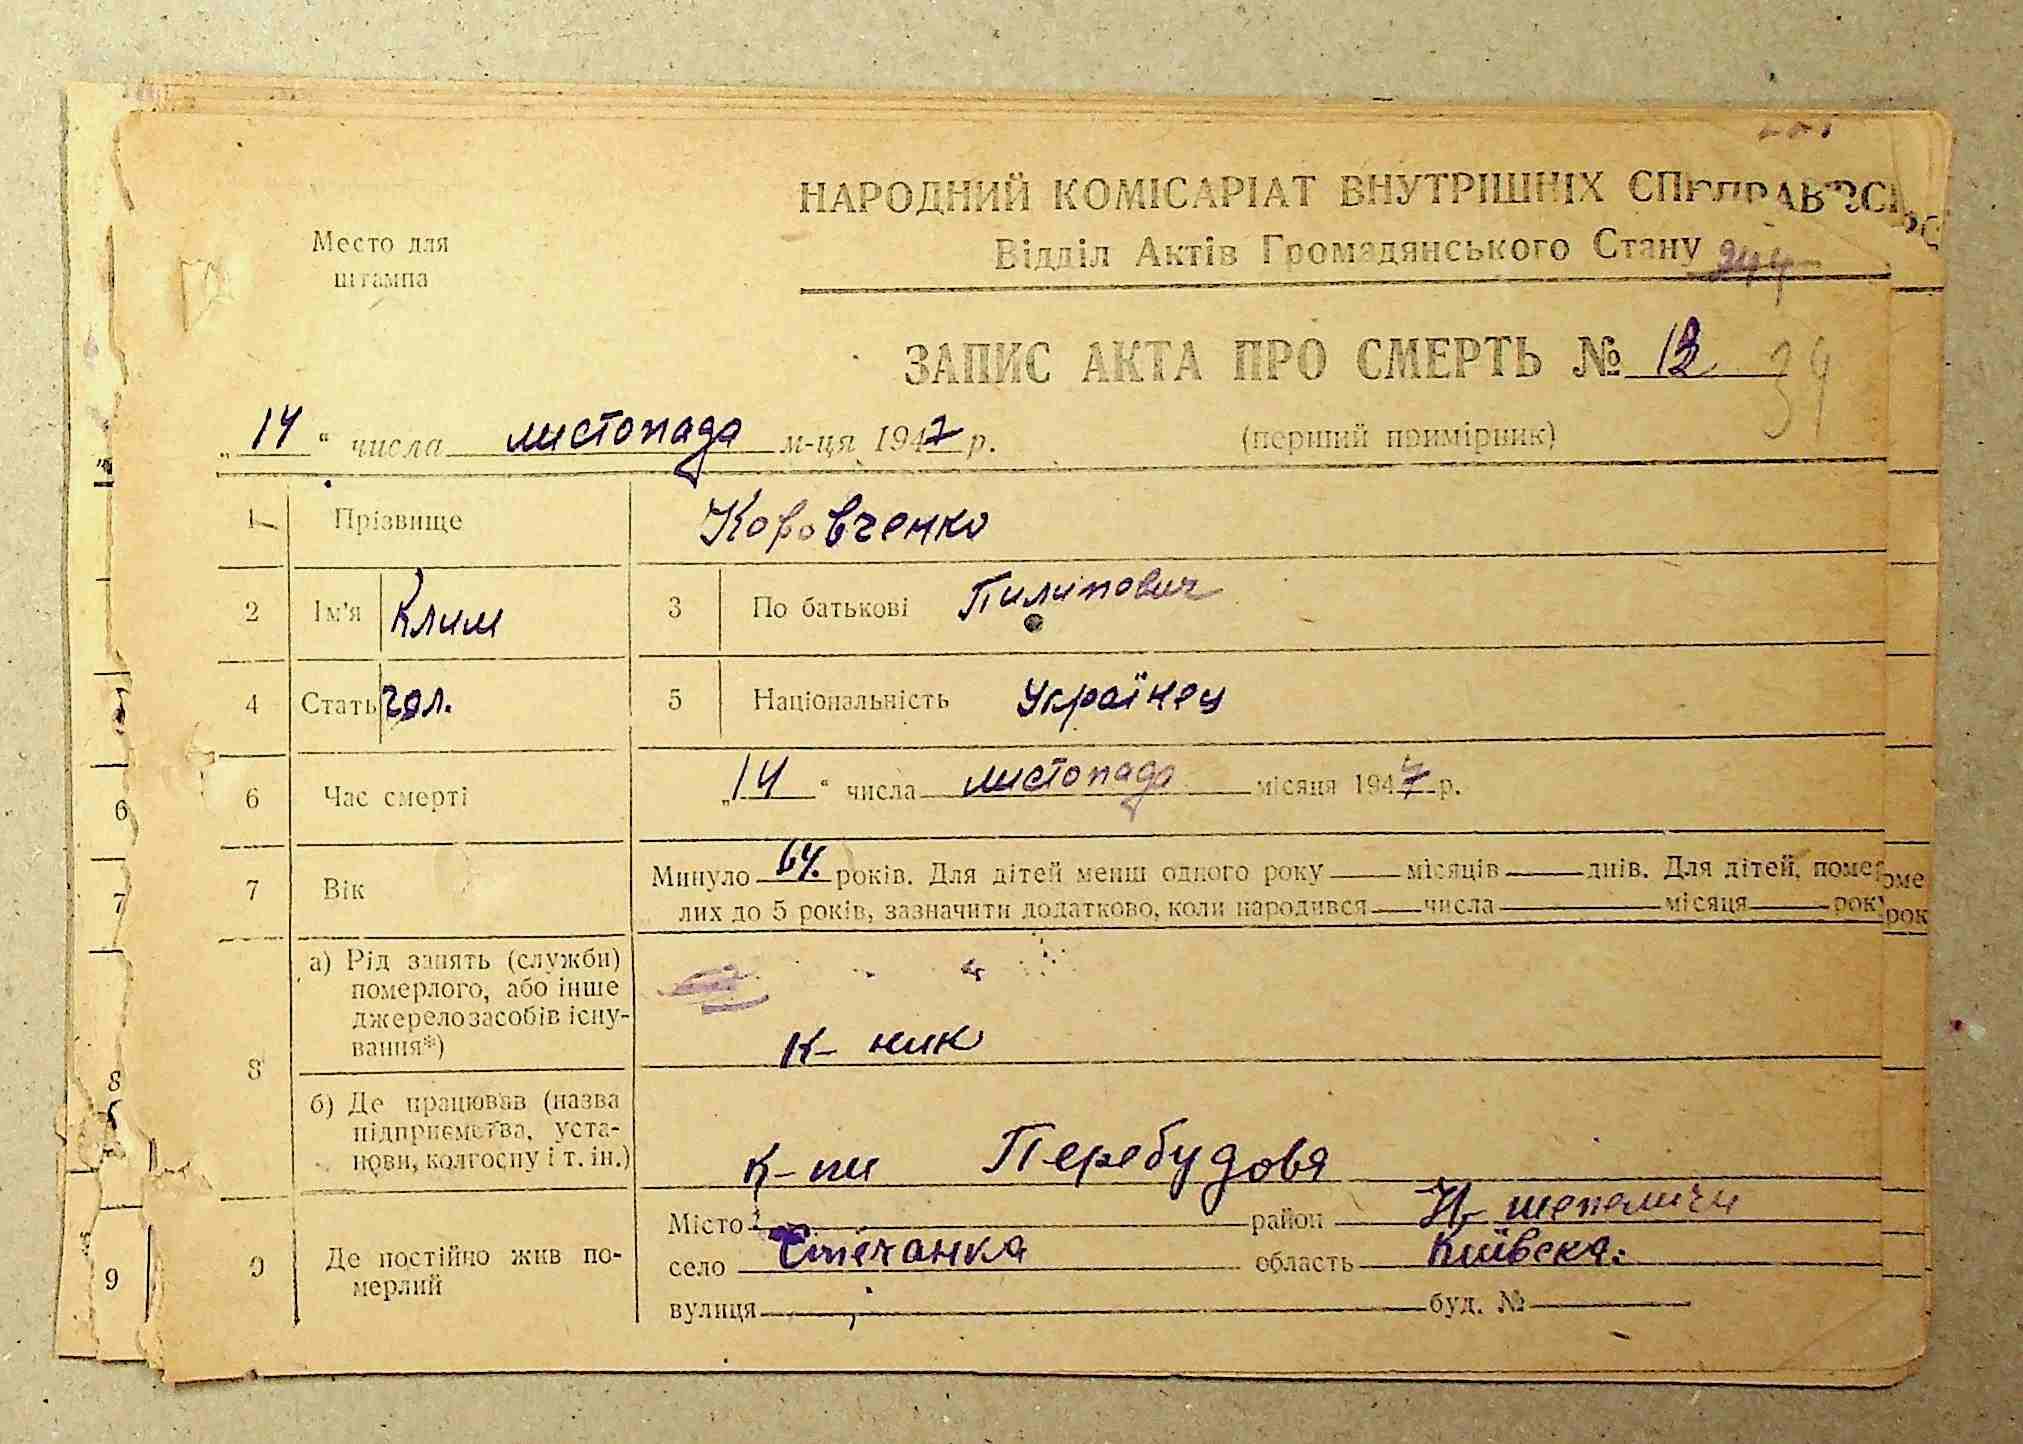 НАРОДНИЙ КОМІСАРІАТ ВНУТРІШНІХ СПРАВ
Место для штампа
Відділ Актів Громадянського Стану
244
ЗАПИС АКТА ПРО СМЕРТЬ № 13
34
„14“ числа листопада м-ця 1947 р. (перший примірник)
1 Прізвище Коровченко
2 Ім'я Клим 3 По батькові Пилипович
4 Стать чол. 5 Національність Українец
6 Час смерті „14“ числа листопада місяця 1947 р.
7 Вік Минуло 64. років. Для дітей менш одного року місяців днів. Для дітей, помер
лих до 5 років, зазначити додатково, коли народився числа місяця року
8 а) Рід занять (служби)
померлого, або інше
джерело засобів існу-
вання*) к-ник
б) Де працював (назва
підприємства, уста-
нови, колгоспу і т. ін.) к-пи Перебудова
9 Де постійно жив по-
мерлий
Місто район Н-шепеличи
село Стечанка область Київска:
вулиця буд. №
6
7
8
9